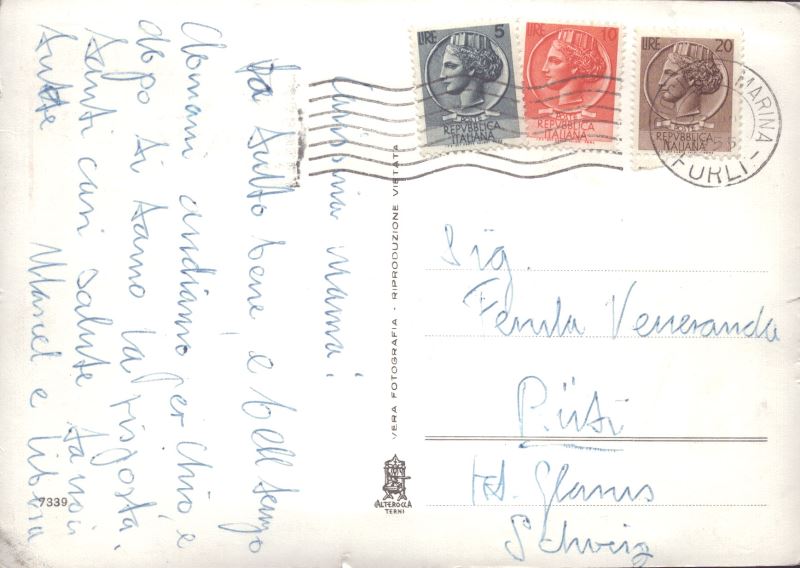 Carissima Mama!
Va tutto bene, e bell tempo
domani andiamo per Chio, e
dopo ti diamo la risposta.
Tanti cari salute da noi
tutte
Marcel e
LIRE 5
POSTE
REPVBBLICA
ITALIANA
LIRE 10
POSTE
REPVBBLICA
ITALIANA
LIRE 20
POSTE
REPVBBLICA
ITALIANA
MARINA
FORLI -
VERA FOTOGRAFIA - RIPRODUZIONE VIETATA
Sig.
Veneranda
Rüti
Kt. Glarus
Schweiz
7339
ALTEROCCA
TERNI